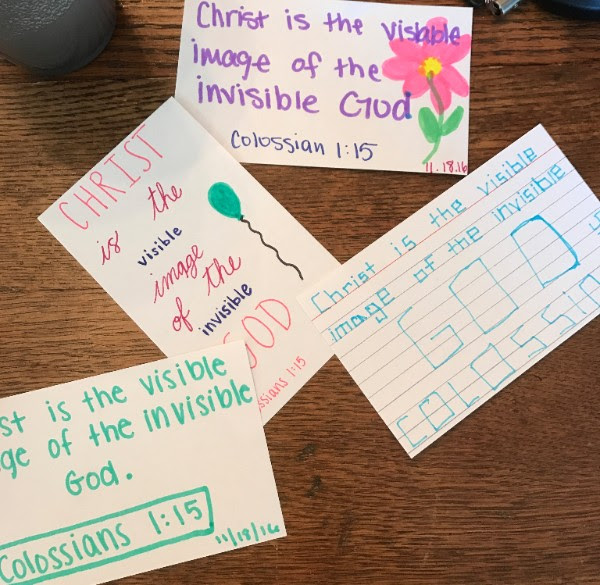 Christ is the visable
image of the
invisible God
Colossian 1:15
11.18.16
CHRIST
is the
visible
image
of the
invisible
GOD
ssians 1:15
Christ is the visible
image of the invisible
GOD
COLOSSIAN
st is the visible
ge of the invisible
God.
Colossians 1:15
11/18/16